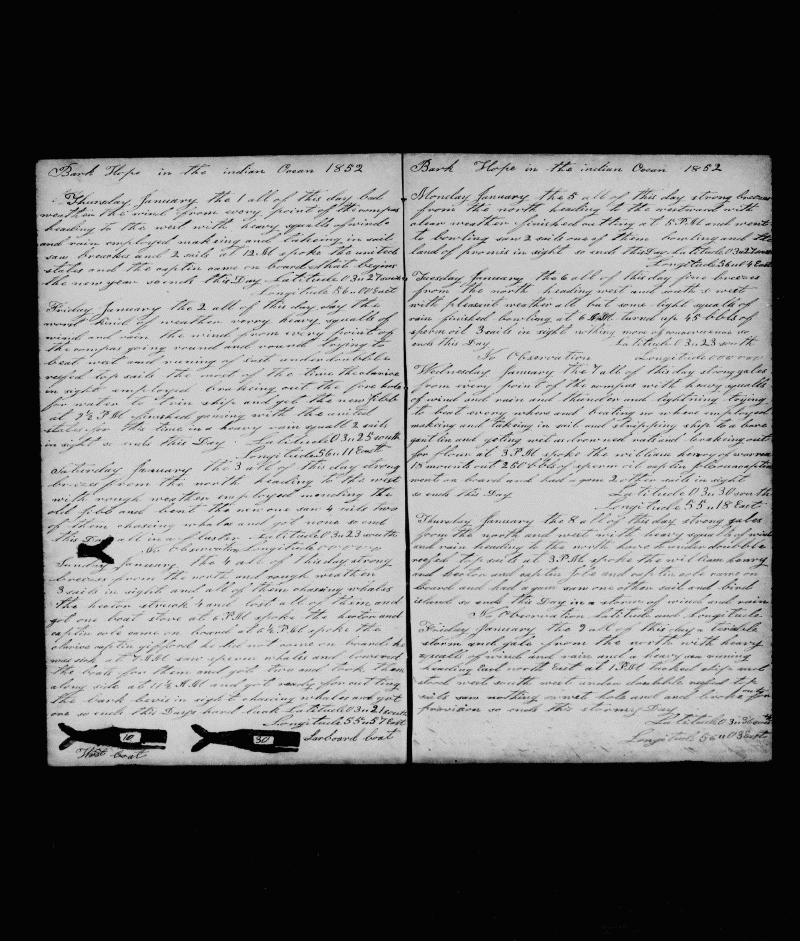 Bark Hope in the indian Ocean 1852
Thursday January the 1 all of this day bad
weather the wind from every point of the compas
heading to the west with heavy squalls of wind
and rain employed making and takeing in sail
saw breaches and 2 sails at 12 M spoke the united
states and the captin came on board that begins
the new year so ends this Day Latitude 03 n 27 south
Longitude 56 n 00 East
Friday January the 2 all of this day day the
worst kind of weather very heavy squalls of
wind and rain the wind from every point of
the compas going round and round trying to
beat west and runing of East under doubble
reefed top sails the most of the time the clarice
in sight employed brakeing out the fore hole
for water to trim ship and get the new jibb
at 2½ P.M finished gaming with the united
states for this time in a heavy rain squall 2 sails
in sight so ends this Day Latitude 03 n 25 south
Longitude 56 n 11 East
Saturday January the 3 all of this day strong
brezes from the north heading to the west
with rough weather employed mending the
old jibb and bent the new one saw 4 sails two
of them chasing whales and got none so end
this Day all in a fluster Latitude 03 n 23 south
No Observation Longitude 00 00 00
Sunday January the 4 all of this day strong
brezes from the north and rough weather
3 sails in sight and all of them chasing whales
the hector struck 4 and lost all of them and
got one boat stove at 6 P.M spoke the hector and
captin cole came on board at 6½ P.M spoke the
clarice captin gifford he did not come on board he
was sick at 7 A.M saw sperm whales and lowered
the boats for them and got two and took them
along side at 11½ A.M and got ready for cutting
the bark bevis in sight chasing whales and got
one so ends this Days hard luck Latitude 03 n 21 south
Longitude 55 n 57 East
10
30
Larboard boat
Wast boat
Bark Hope in the indian Ocean 1852
Monday January the 5 all of this day strong brezes
from the north heading to the westward with
clear weather finished cutting at 5 P.M and went
to bowling saw 2 sails one of them bowling and the
land of promis in sight so ends this Day Latitude 03 n 27 south
Longitude 56 n 04 East
Tuesday January the 6 all of this day fine brezes
from the north heading west and south & west
with plesent weather all but some light squalls of
rain finished bowling at 6 A.M turned up 45 bbls of
sperm oil 3 sails in sight nothing more of so
ends this Day Latitude 03 n 23 south
No Observation Longitude 00 00 00
Wednesday January the 7 all of this day strong gales
from every point of the compas with heavy squalls
of wind and rain and thunder and lightning trying
to beat every where and beating no where employed
making and takeing in sail and stripping ship to a bare
gant line and geting wet and drowned rats and breakeing out
for flour at 3 P.M spoke the william henry of warren
18 mounths out 250 bbls of sperm oil captin
went on board and had a gam 2 other sails in sight
so ends this Day Latitude 03 n 30 south
Longitude 55 n 18 East
Thursday January the 8 all of this day strong gales
from the north and west with heavy squalls of wind
and rain heading to the north hove to under doubble
reefed top sails at 3 P.M spoke the william henry
and hector and captin and captin cole came on
board and had a gam saw one other sail and bird
island so ends this Day in a storm of wind and rain
No Observation Latitude and Longitude
Friday January the 2 all of this day a terable
storm and gale from the north with heavy
squalls of wind and rain and a heavy sea runing
heading East north East at 1 P.M tacked ship and
stood west south west under doubble reefed top
sails saw nothing wrote hole and and broke out for
provision so ends this stormy Day
Latitude 03 n 36 south
Longitude 56 n 03 East